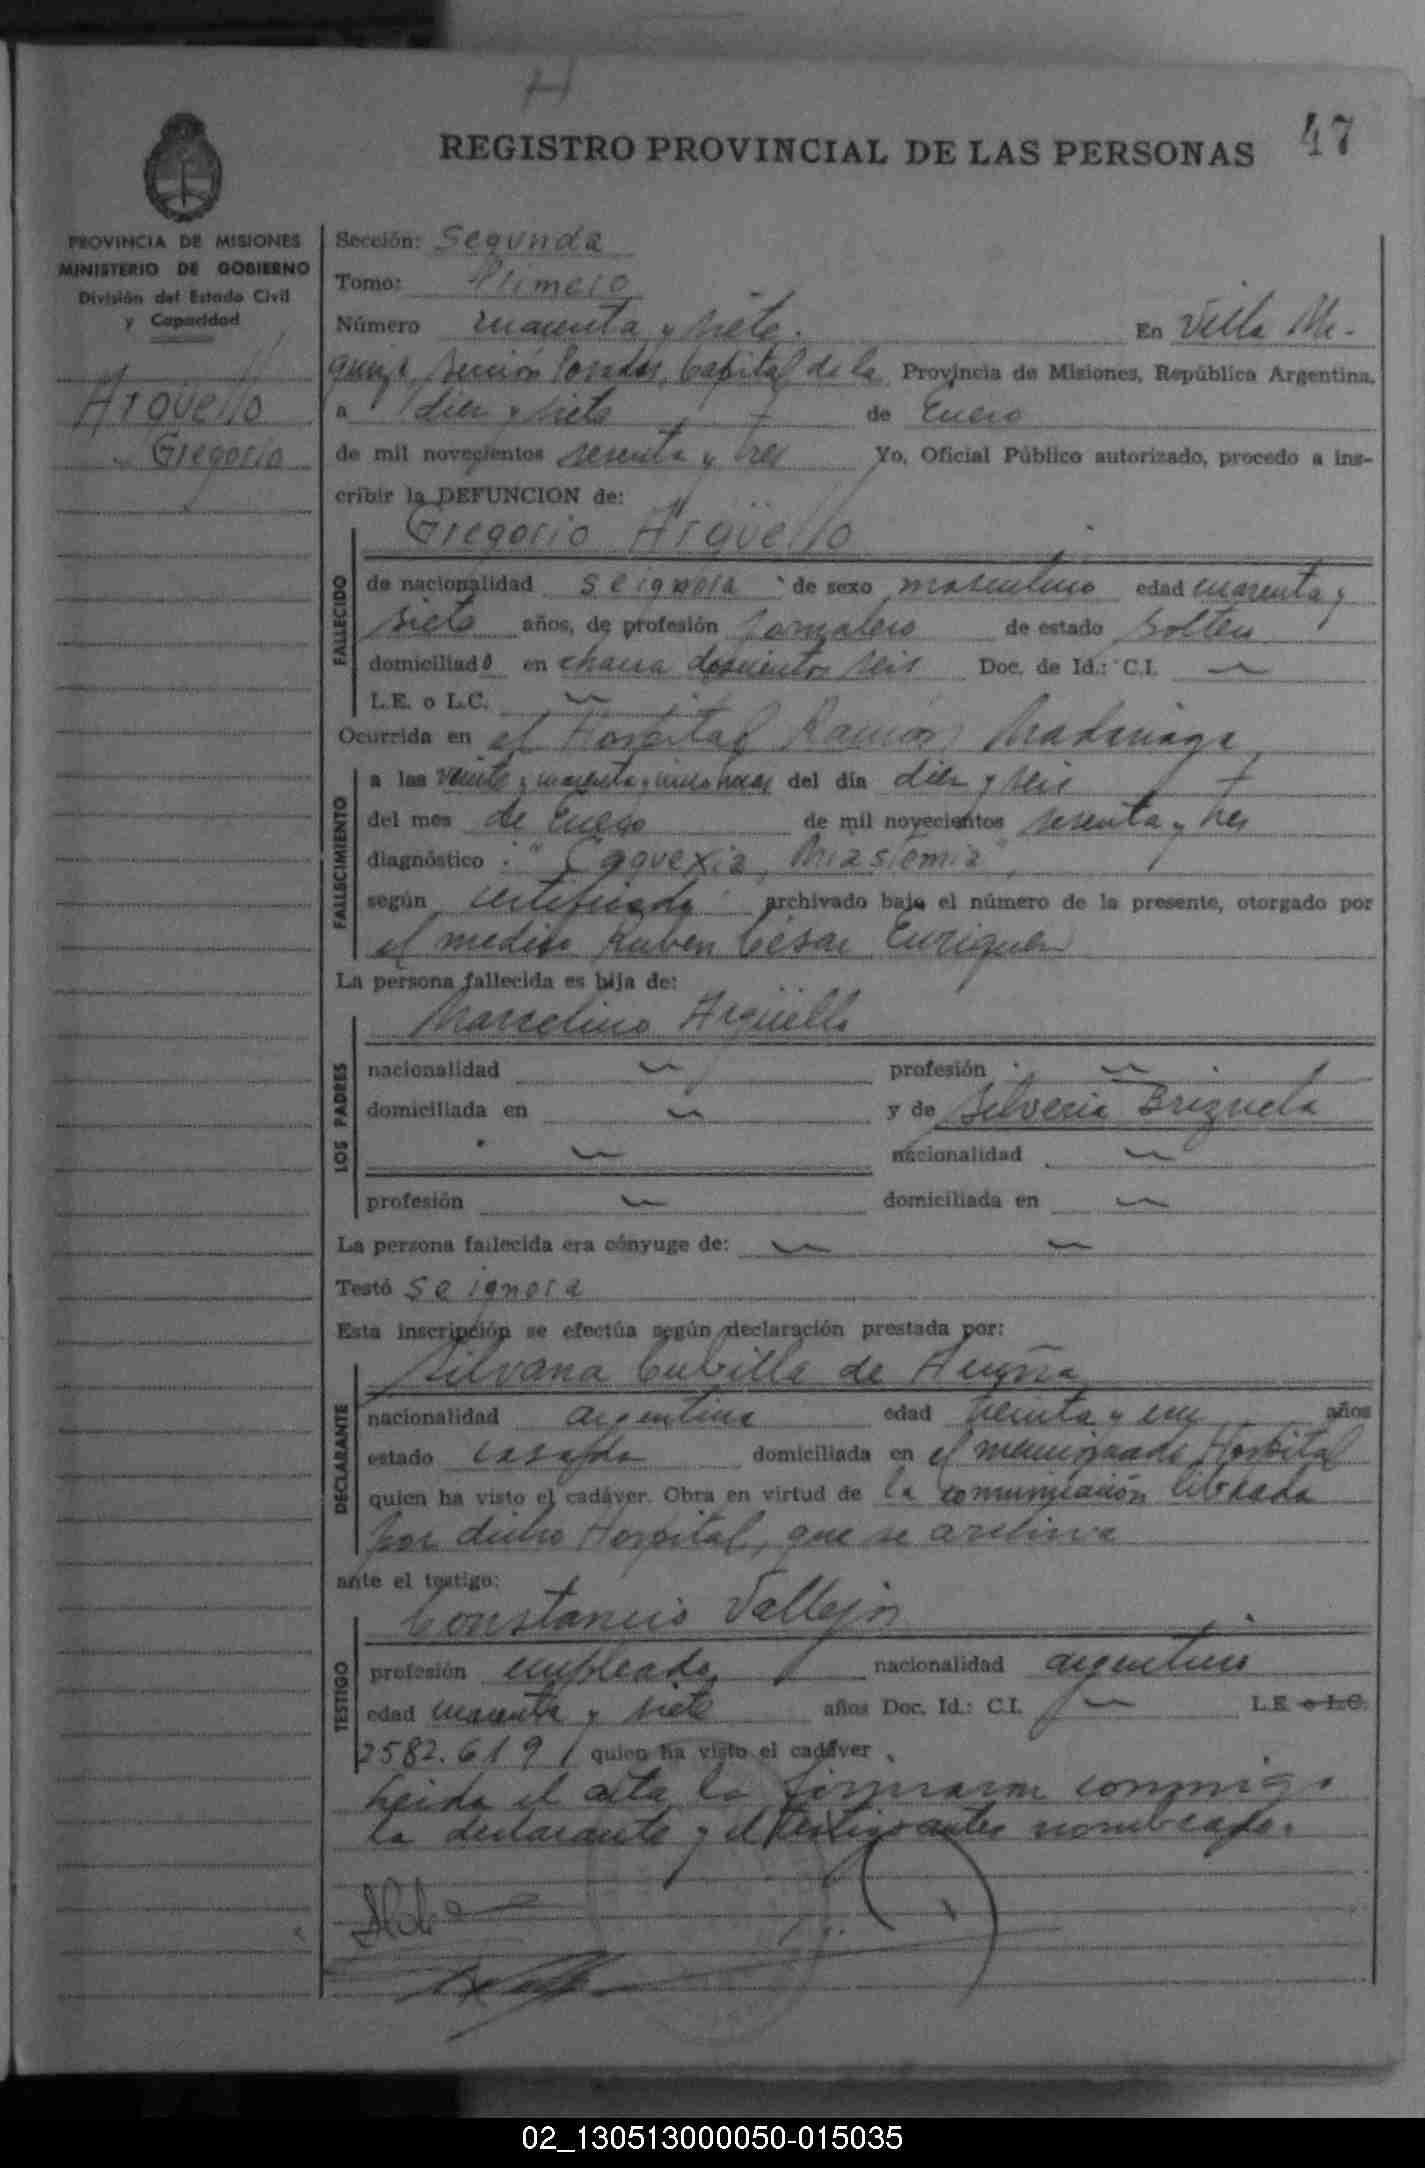 H
47
REGISTRO PROVINCIAL DE LAS PERSONAS
PROVINCIA DE MISIONES
MINISTERIO DE GOBIERNO
División del Estado Civil
y Capacidad
Argüello
Gregorio
Sección: Segunda
Tomo: Primero
Número cuarenta y siete. En Villa Ur-
quiza, Sección Posadas, Capital de la Provincia de Misiones, República Argentina,
a diez y siete de Enero
de mil novecientos sesenta y tres Yo, Oficial Público autorizado, procedo a ins-
cribir la DEFUNCION de:
Gregorio Argüello
FALLECIDO
de nacionalidad se ignora de sexo masculino edad cuarenta y
siete años, de profesión jornalero de estado soltero
domiciliado en chacra doscientos seis Doc. de Id.: C.I.
L.E. o L.C.
Ocurrida en el Hospital Ramón Madariaga
FALLECIMIENTO
a las veinte y cuarenta y cinco horas del día diez y seis
del mes de Enero de mil novecientos sesenta y tres
diagnóstico: "Caquexia, Miastemia",
según certificado archivado bajo el número de la presente, otorgado por
el medico Ruben César Enriquez
La persona fallecida es hija de:
LOS PADRES
Marcelino Argüello
nacionalidad profesión
domiciliada en y de Silveria Brizuela
nacionalidad
profesión domiciliada en
La persona fallecida era cónyuge de:
Testó se ignora
Esta inscripción se efectúa según declaración prestada por:
DECLARANTE
Silvana Cubilla de Acuña
nacionalidad argentina edad treinta y un años
estado casada domiciliada en el mencionado Hospital
quien ha visto el cadáver. Obra en virtud de la comunicación librada
por dicho Hospital, que se archiva
ante el testigo:
TESTIGO
Constancio Vallejos
profesión empleado nacionalidad argentino
edad cuarenta y siete años Doc. Id.: C.I. L.E. o L.C.
2582.619 quien ha visto el cadáver.
Leida el acta la firmaron conmigo
la declarante y el testigo antes nombrado.
02_130513000050-015035